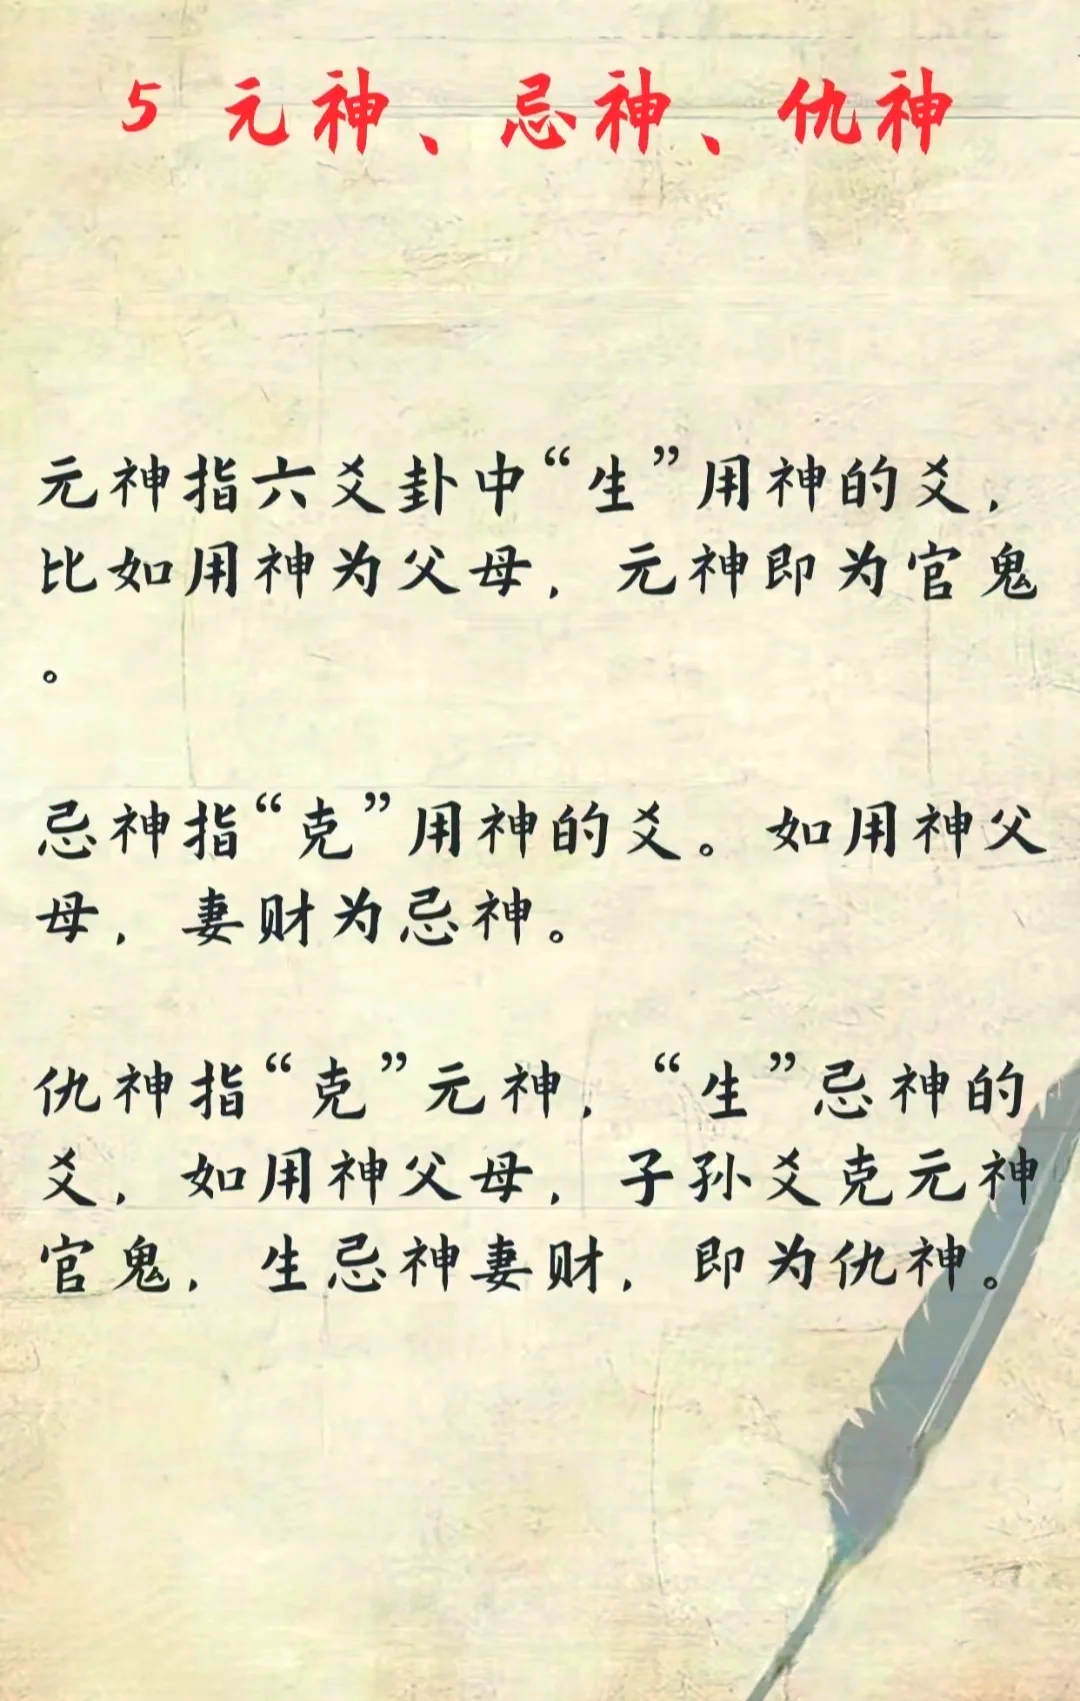 5 元神、忌神、仇神
元神指六爻卦中“生”用神的爻，
比如用神为父母，元神即为官鬼
。
忌神指“克”用神的爻。如用神父
母，妻财为忌神。
仇神指“克”元神，“生”忌神的
爻，如用神父母，子孙爻克元神
官鬼，生忌神妻财，即为仇神。